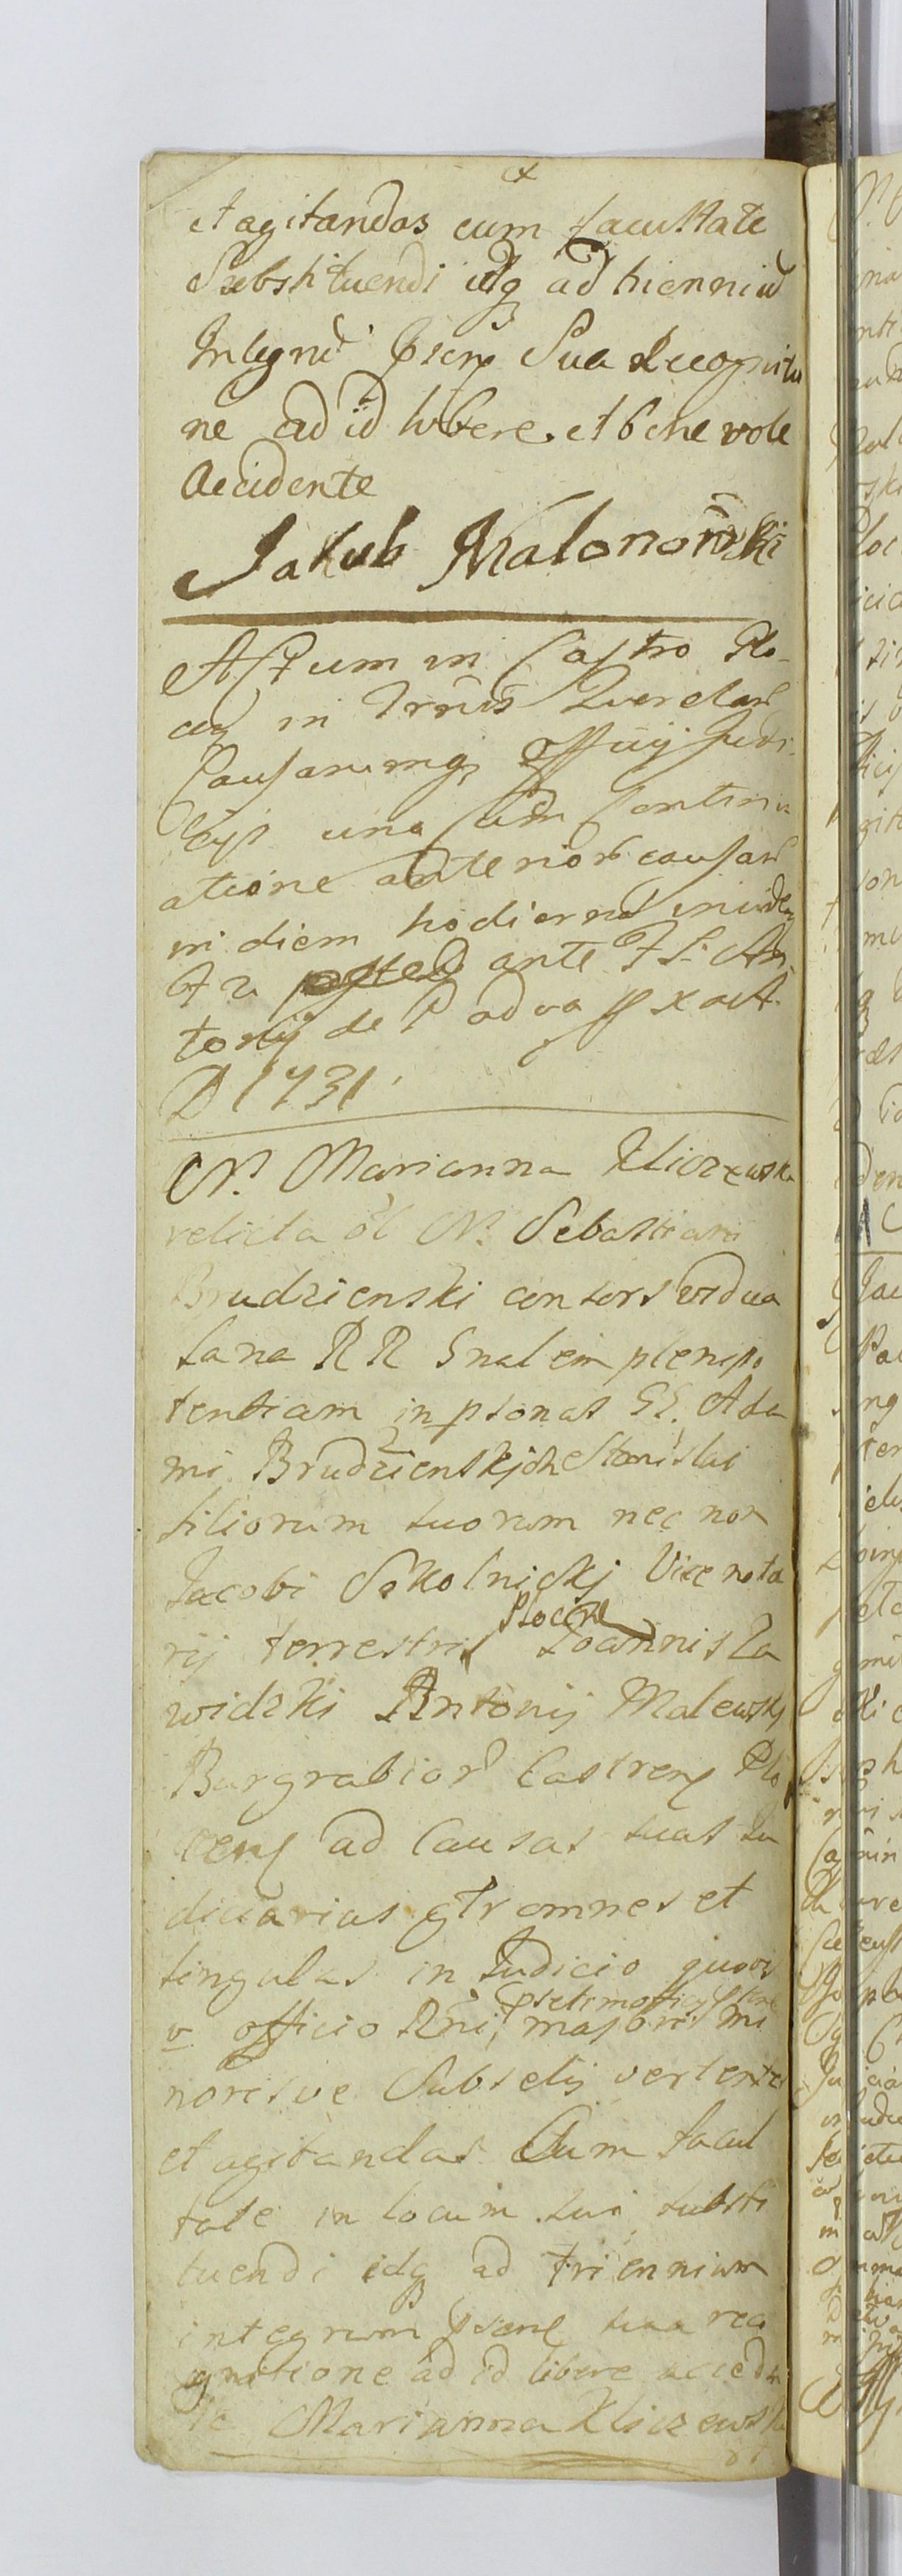 et agitandas cum facultate
Substituendi idq ad trienniũ
Integrũ Psenș Sua Recognitio
ne ad id libere et bene vole
Accidente
Jakub Malonowski
Actum in Castro Plo-
ceñ in Trñis Querelarũ
Causarumq Officij Judi-
lis una cum Continu
atione anteriorũ causarũ
in diem hodiernũ inciden
ante F S. An
tonij de Padva px Aº
D 1731
N. Marianna Kliczewska
relicta ol N. Sebastiani
Brudzienski consors vidua
sana RR Gnalem plenipo
tentiam in psonas GG. Ada
mi Brudzienskich Stanislai
filiorum suorum nec non
Jacobi Sokolnickj Vice nota
rij terrestris Plocen Joannis Za
widzki Antonij Malewskj
Burgrabiorũ Castrenș Plo
cenș ad Causas suas Ju
diciarias gtr omnes et
singulas in Judicio quovis
v officio Rni, majoris mi
norisve Subselij vertentes
et agitandas Cum facul
tate in locum sui substi
tuendi idq ad triennium
integrum psenș sua reco
gnitione ad id libere acceden
te Marianna Kliczewska